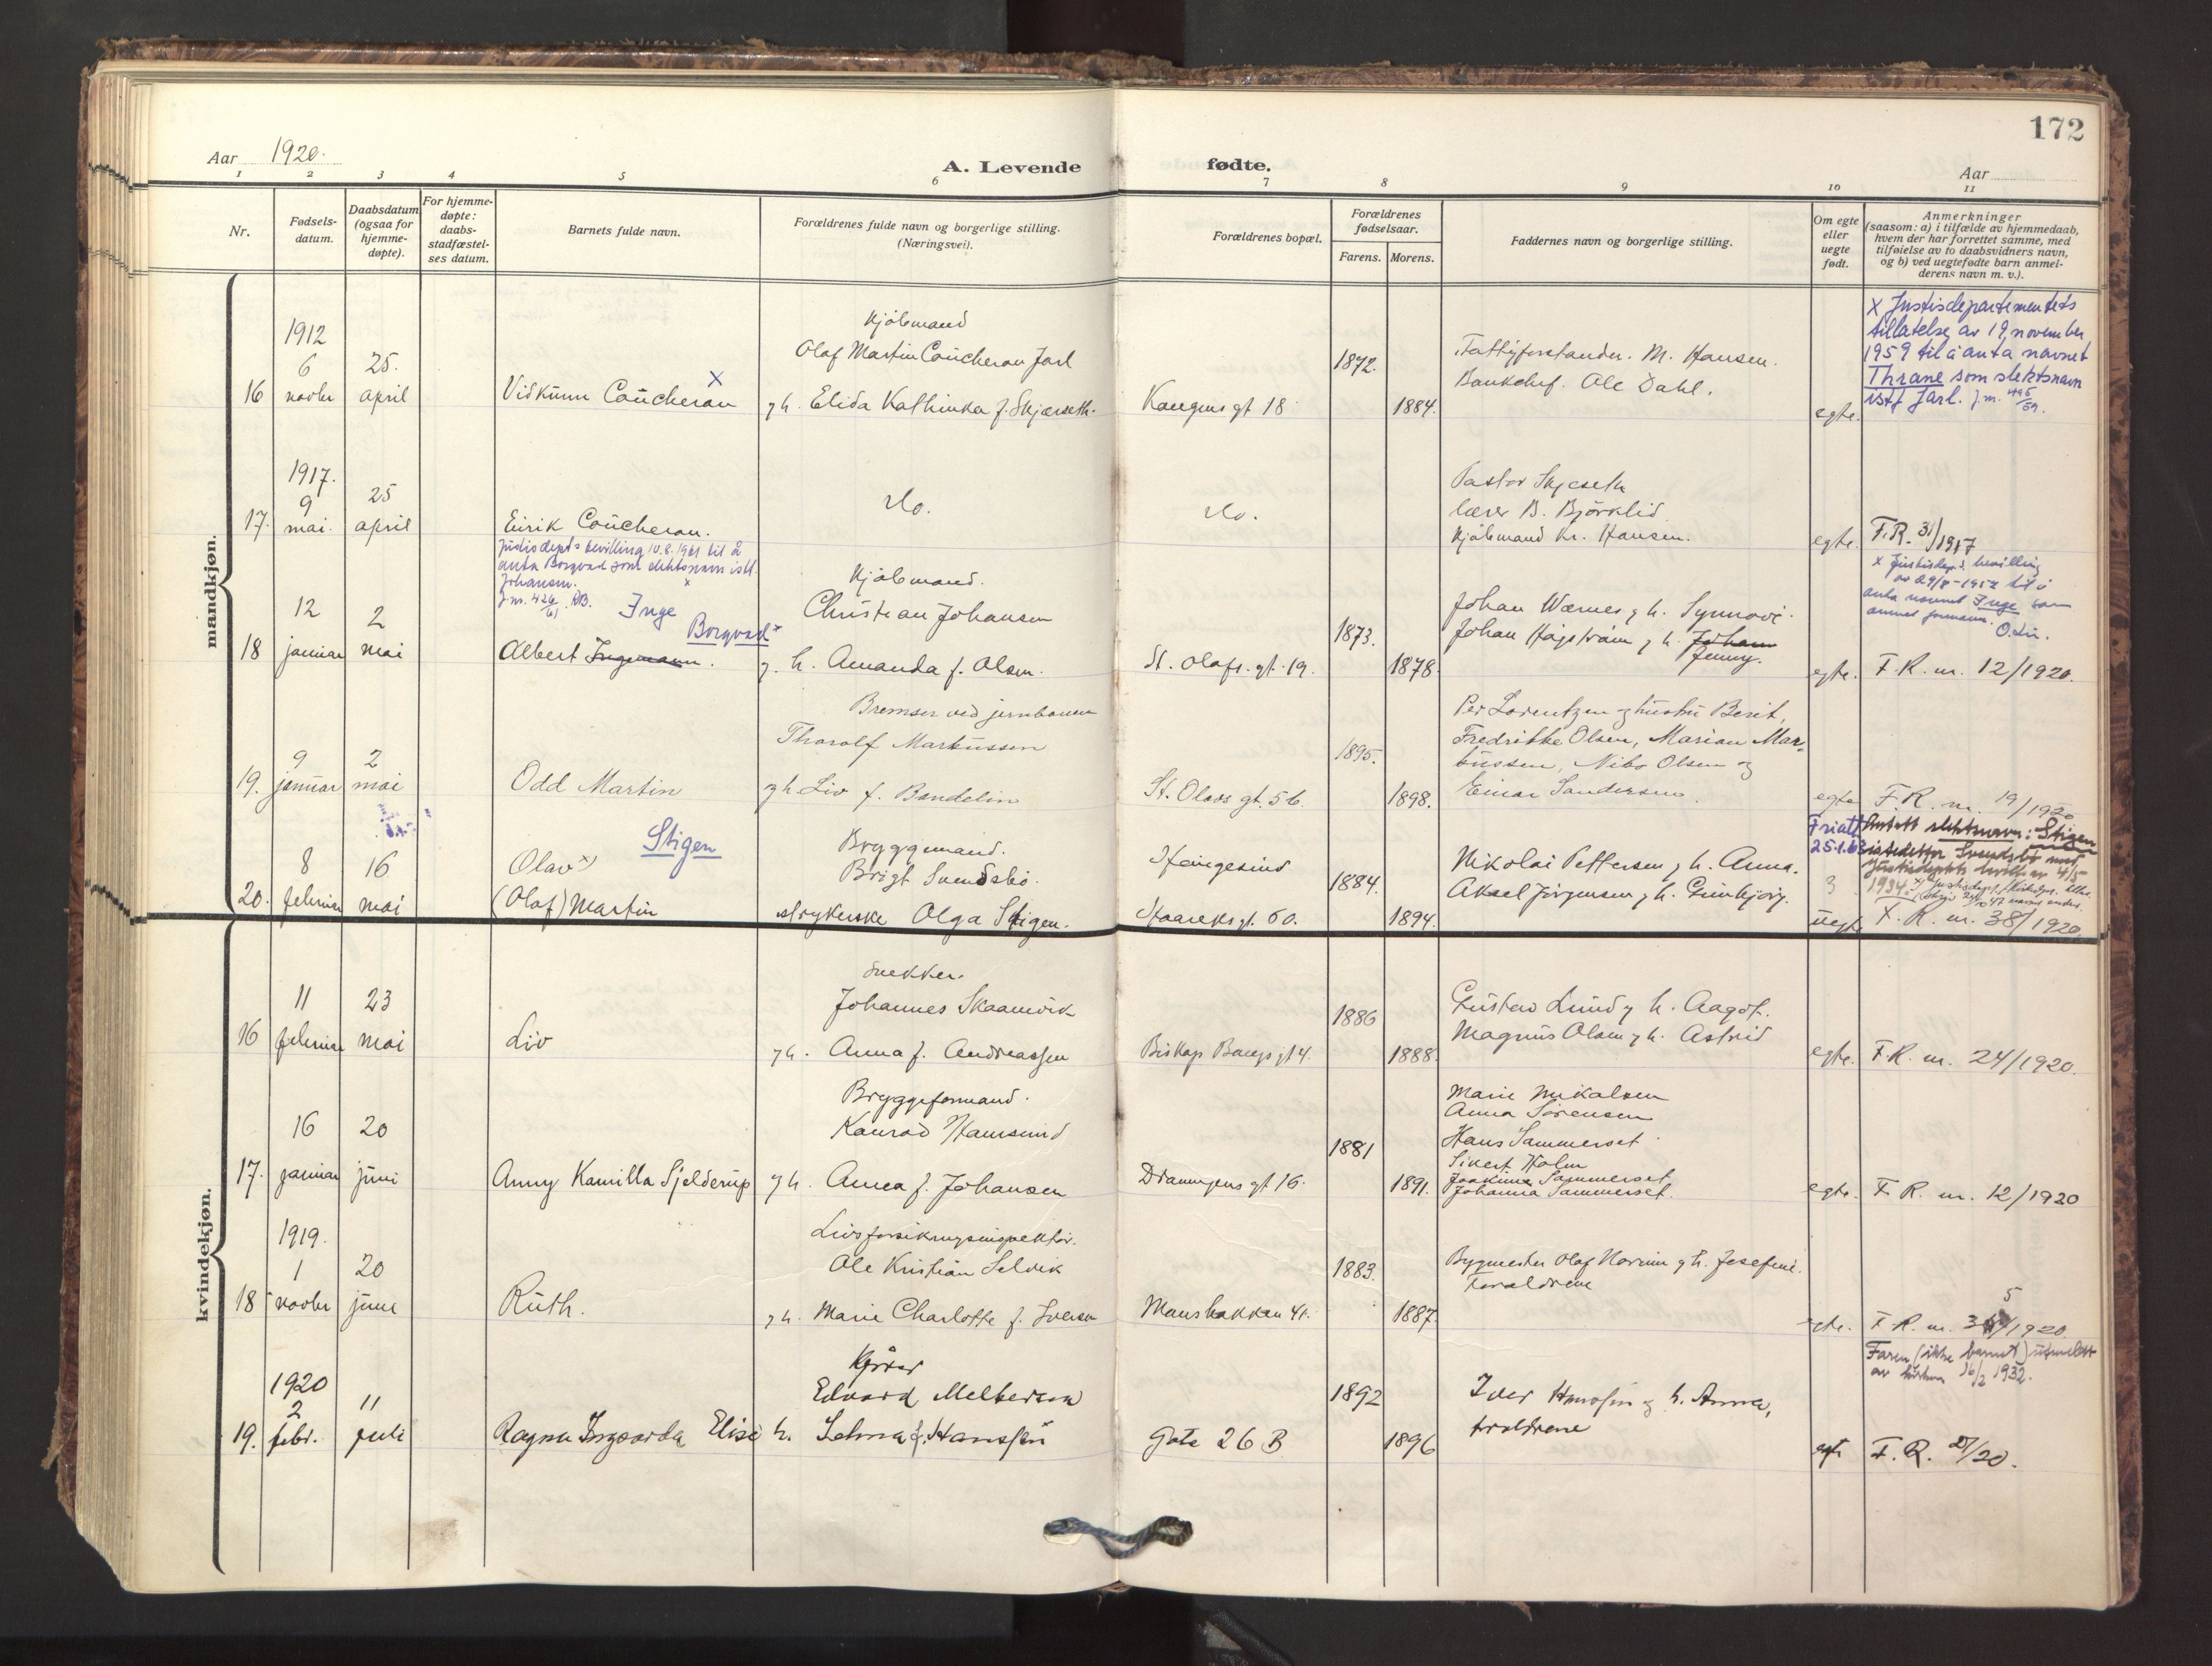 172
Aar 1920.
A. Levende fødte.
Aar
1 2 3 4 5 6 7 8 9 10 11
Nr.
Fødsels-
datum.
Daabsdatum
(ogsaa for
hjemme-
døpte).
For hjemme-
døpte:
daabs-
stadfæstel-
ses datum.
Barnets fulde navn.
Forældrenes fulde navn og borgerlige stilling.
(Næringsvei).
Forældrenes bopæl.
Forældrenes
fødselsaar.
Farens. Morens.
Faddernes navn og borgerlige stilling.
Om egte
eller
uegte
født.
Anmerkninger
(saasom: a) i tilfælde av hjemmedaab,
hvem der har forrettet samme, med
tilføielse av to daabsvidners navn,
og b) ved uegtefødte barn anmel-
derens navn m. v.).
mandkjøn.
16
1912
6
novbr
25.
april
Vidkunn Coucheron x
Kjøbmand
Olaf Martin Coucheron Jarl
g h. Elida Kathinka f. Skjærseth.
Kongens gt 18
1872.
1884.
Fattigforstander. M. Hansen.
Bankchef. Ole Dahl.
egte.
x Justisdepartementets
tillatelse av 19 november
1959 til å anta navnet
Thrane som slektsnavn
istf Jarl. J.m. 495/59.
17.
1917.
9
mai.
25
april
Eirik Coucheron.
do.
do.
Pastor Skjeseth
lærer B. Bjørklid
Kjøbmand Kr. Hansen.
egte.
F.R. 31/1917
Justisdept's bevilling 10.8.1961 til å
anta Borgvad som slektsnavn istf.
Johansen. x
J.m. 426/61. RB.
18
12
januar
2
mai
Inge
Borgvad x
Albert Ingemann.
Kjøbmand.
Christian Johansen
g. h. Amanda f. Olsen.
St. Olafs. gt. 19.
1873.
1878.
Johan Wærnes g h. Synnøve.
Johan Hägström g h. Johann
Jenny.
egte.
x Justisdep.s bevilling
av 29/8-1952 til å
anta navnet Inge som
annet fornavn.
F.R. nr. 12/1920.
19.
9
januar
2
mai
Odd Martin
Bremser ved jernbanen
Thoralf Markussen
g h Liv f. Bendelin
St. Olavs gt. 5b.
1895.
1898.
Per Lorentzen og hustru Berit,
Fredrikke Olsen, Marian Mar-
kussen, Nibo Olsen og
Einar Sandersen.
egte
F.R. nr. 19/1920
20.
8
februar
16
mai
Stigen
Olav x)
(Olaf) Martin
Bryggemand.
Brigt Svendsbø.
strykerske Olga Stigen.
Haugesund
Haareks gt. 60.
1884.
1894.
Nikolai Pettersen g h. Anna.
Aksel Jørgensen g h. Gunbjørg.
Friatt
25.1.63
3
uegte
Antatt slektsnavn: Stigen
istedetfor Svendsbø med
justisdeptets bevill. av 4/5
1934.
F.R. nr. 38/1920.
kvindekjøn.
16
11
februar
23
mai
Liv
Snekker.
Johannes Skaanvik
g h. Anna f. Andreassen
Biskop Bangs gt 4.
1886
1888.
Gustav Lund g h. Aagot.
Magnus Olsen g h. Astrid
egte.
F.R. nr. 24/1920.
17.
16
januar
20
juni
Anny Kamilla Sjelderup
Bryggeformand.
Konrad Hamsund
g h. Anna f. Johansen
Dronningens gt 16.
1881
1891.
Marie Mikalsen
Anna Sørensen
Hans Sammerset
Sivert Holm
Joakime Sammerset
Johanna Sammerset.
egte.
F.R. nr. 12/1920
18
1919.
1
novbr
20
juni
Ruth.
Livsforsikringsinspektør.
Ole Kristian Selvik
g h. Marie Charlotte f. Iversen
Mausbakken 4.
1883.
1887.
Bygmester Olaf Norum g h. Josefine.
Forældrene
egte.
5
F.R. nr. 3/1920.
Faren (ikke barnet) utmeldt
av kirken 16/2 1932.
19.
1920
2
febr.
11
juli
Ragna Ingvarda Elise
Kjører
Edvard Melkersen
h. Selma f. Hanssen
Gate 26 B
1892
1896
Iver Hanssen og h. Anna,
foreldrene
egte
F.R. 27/20.